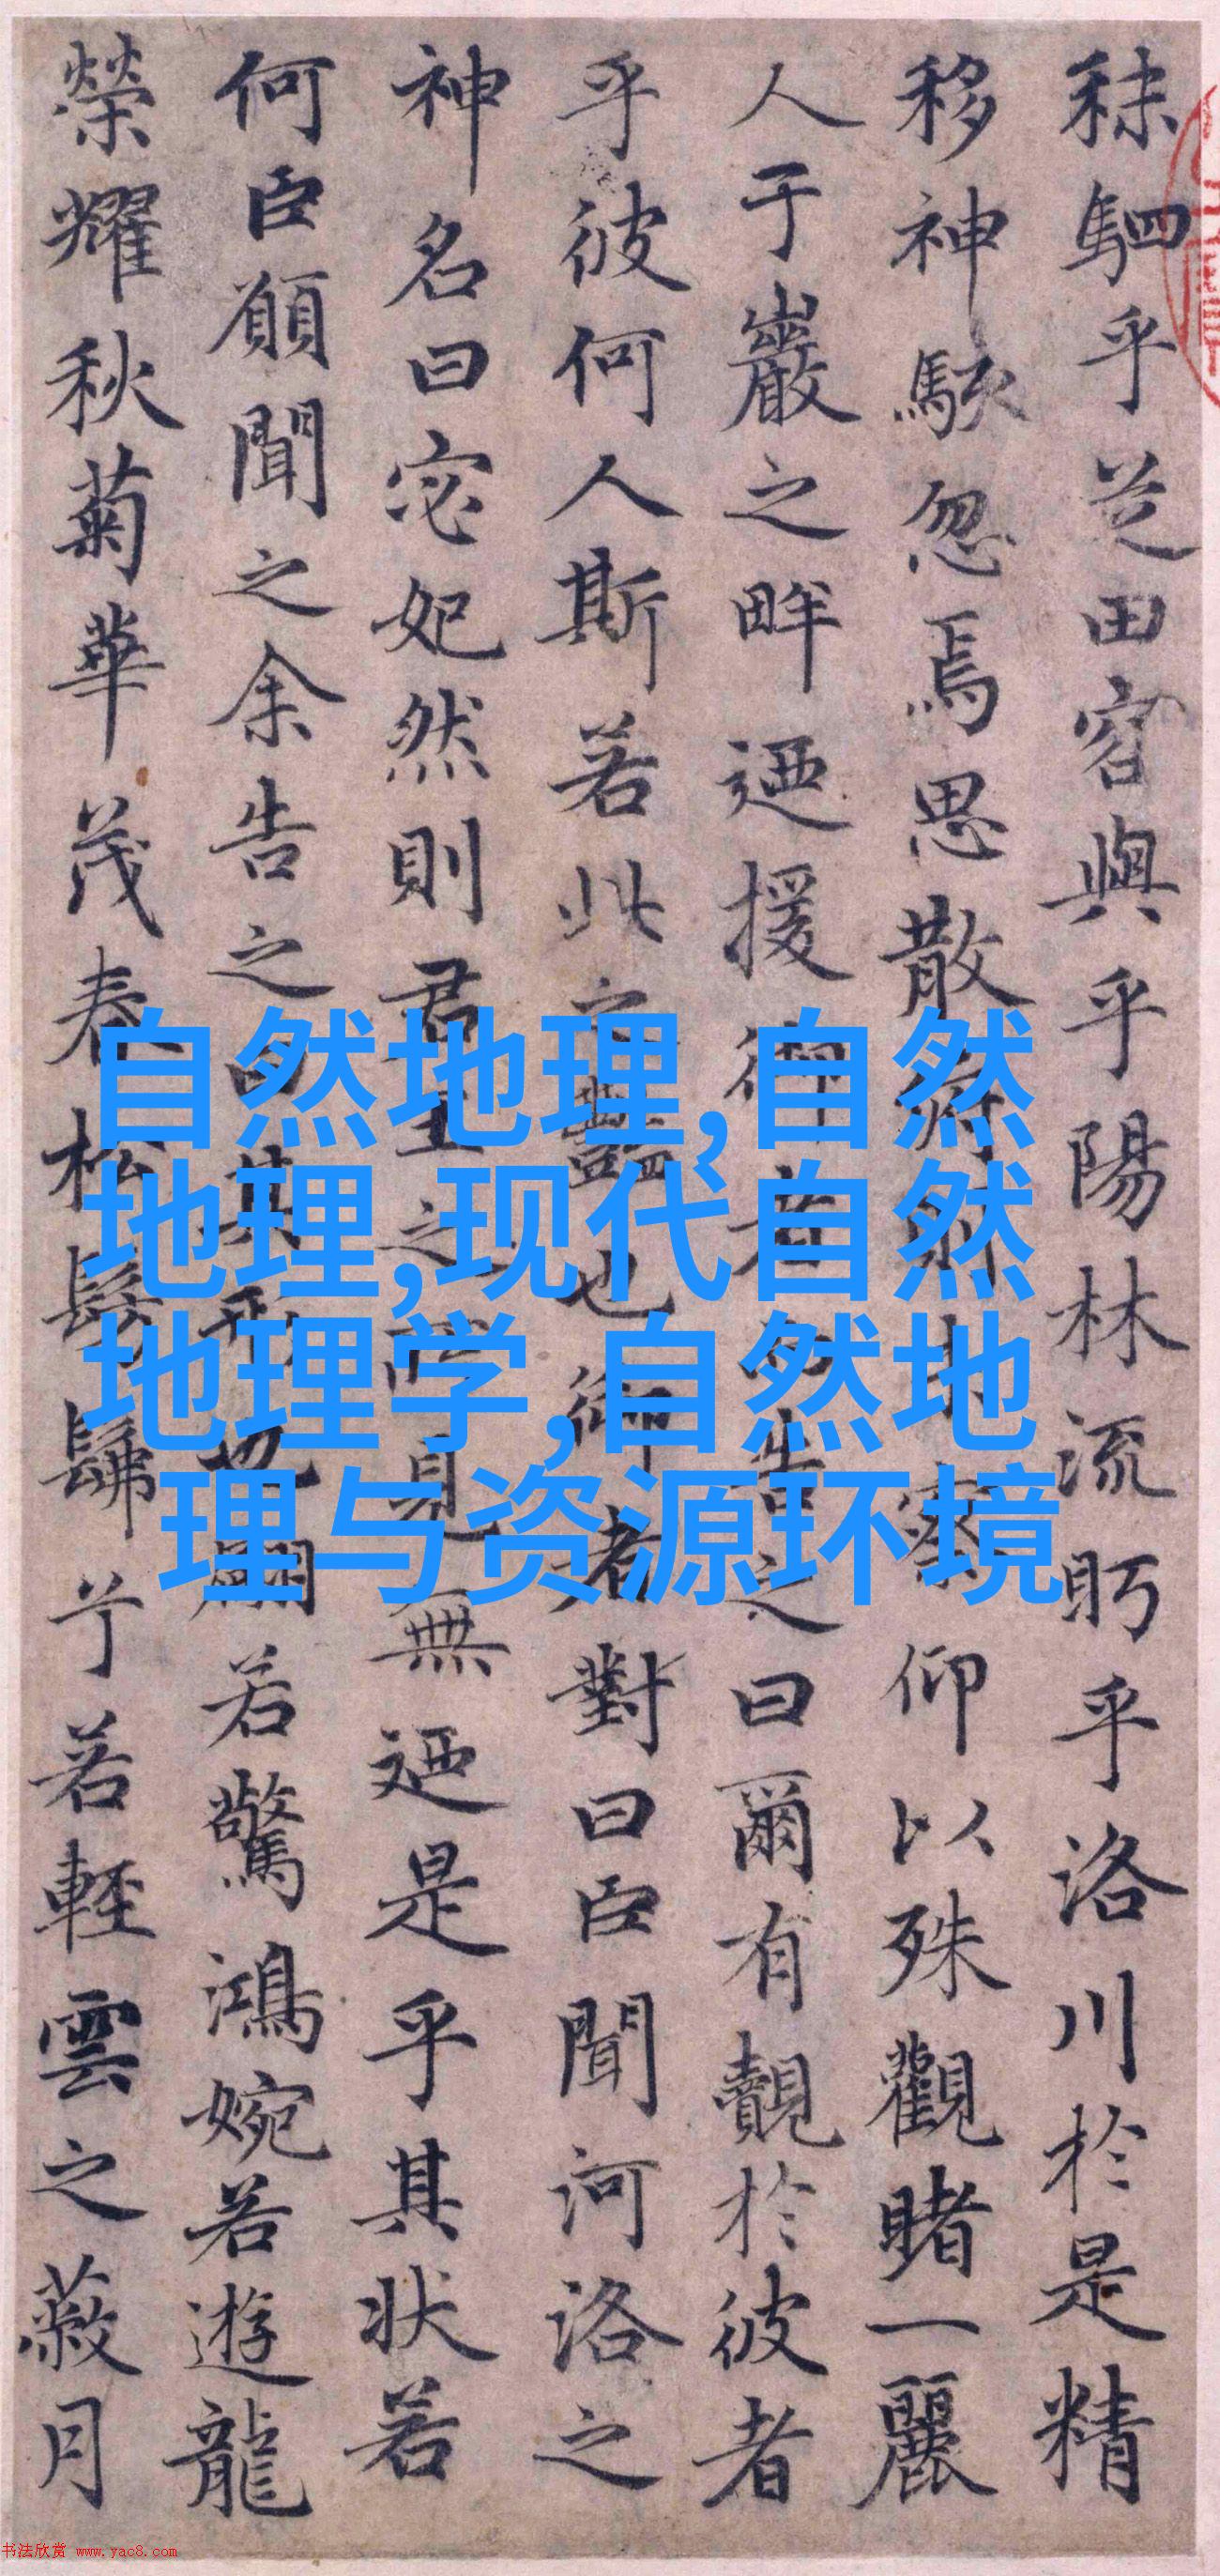 秣駟乎芝田容與乎陽林流眄乎洛川於是精
移神駭忽焉思散俯則未察仰以殊觀睹一麗
人于巖之畔迺援御者而告之曰爾有覿於彼者
乎彼何人斯若此之豔也御者對曰臣聞河洛之
神名曰宓妃然則君王之所見無迺是乎其狀若
何臣願聞之余告之曰其形也翩若驚鴻婉若遊龍
榮耀秋菊華茂春松髣髴兮若輕雲之蔽月
自然地理,自然
地理,现代自然
地理学,自然地
理与资源环境
书法欣赏 www.yac8.com